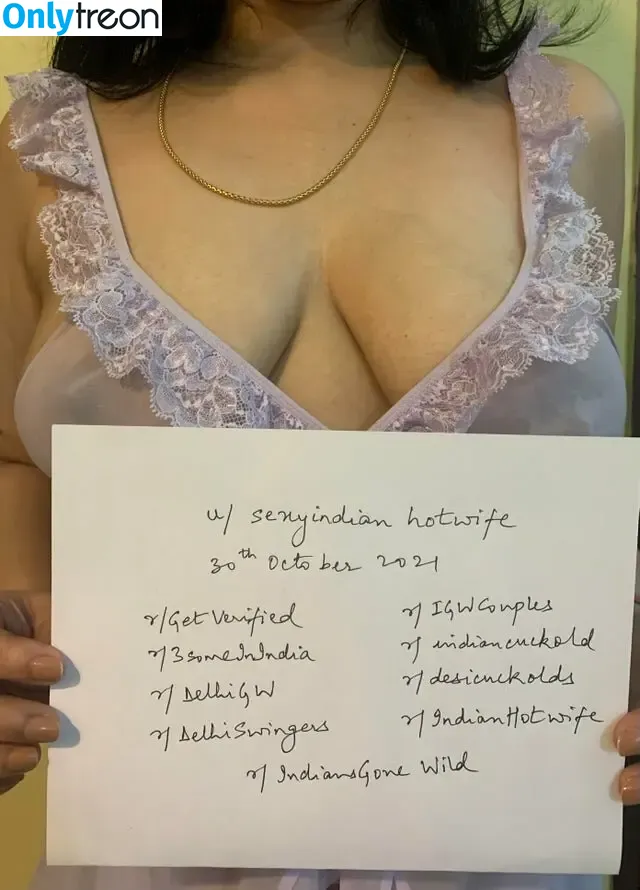 Onlytreon
u/ sexyindian hotwife
30th October 2021
r/GetVerified
r/3someInIndia
r/DelhiGW
r/DelhiSwingers
r/IGWCouples
r/indiancuckold
r/desicuckolds
r/IndianHotwife
r/IndiansGone Wild